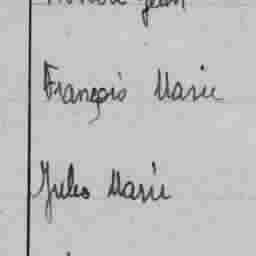 Jean
François Marie
Jules Marie